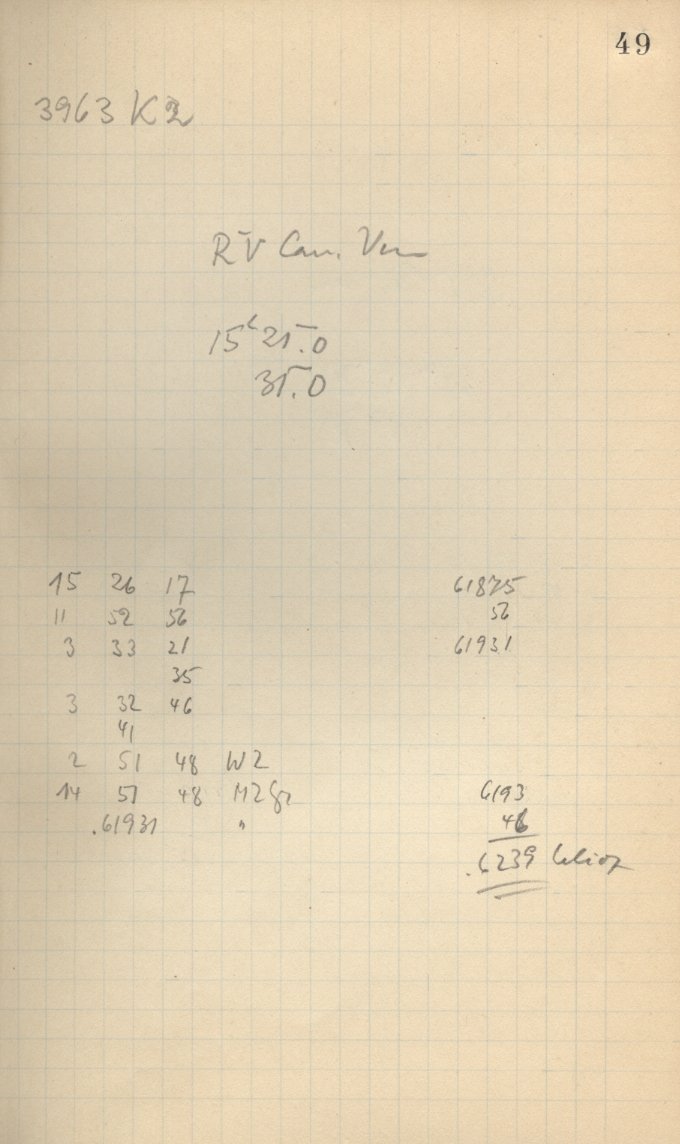 49
3963 K2
RV Can. Ven
15h 25.0
35.0
15 26 17 61875
11 52 56 56
3 33 21 61931
35
3 32 46
41
2 51 48 WZ
14 51 48 MZGr 6193
.61931 " 46
.6239 helioz